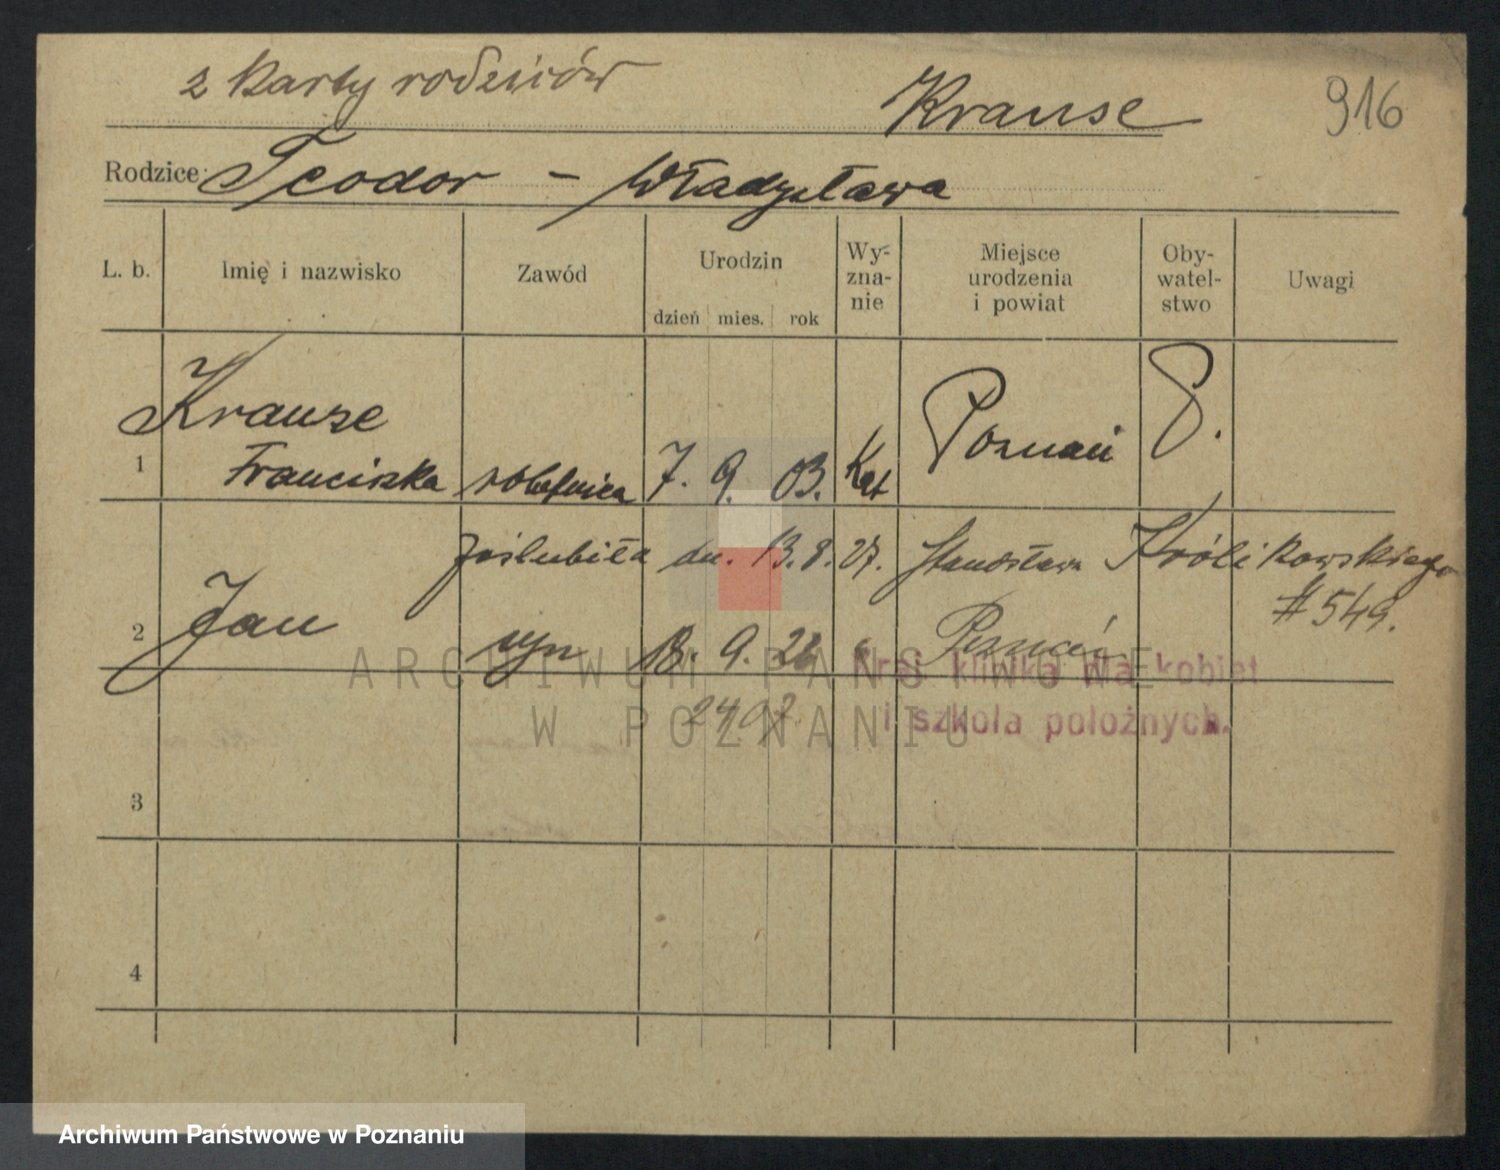 z karty rodziców
Krause
916
Rodzice: Teodor – Władysława
L. b.
Imię i nazwisko
Zawód
Urodzin
dzień mies. rok
Wy-
zna-
nie
Miejsce
urodzenia
i powiat
Oby-
watel-
stwo
Uwagi
Krause
1 Franciszka robotnica 7. 9. 03. Kat Poznań P.
poślubiła dn. 13. 8. 27. Stanisława Królikowskiego
# 549.
2 Jan syn 18. 9. Poznań
Kraj. klinika dla kobiet
i szkoła położnych.
3
4
ARCHIWUM PAŃSTWOWE
W POZNANIU
Archiwum Państwowe w Poznaniu